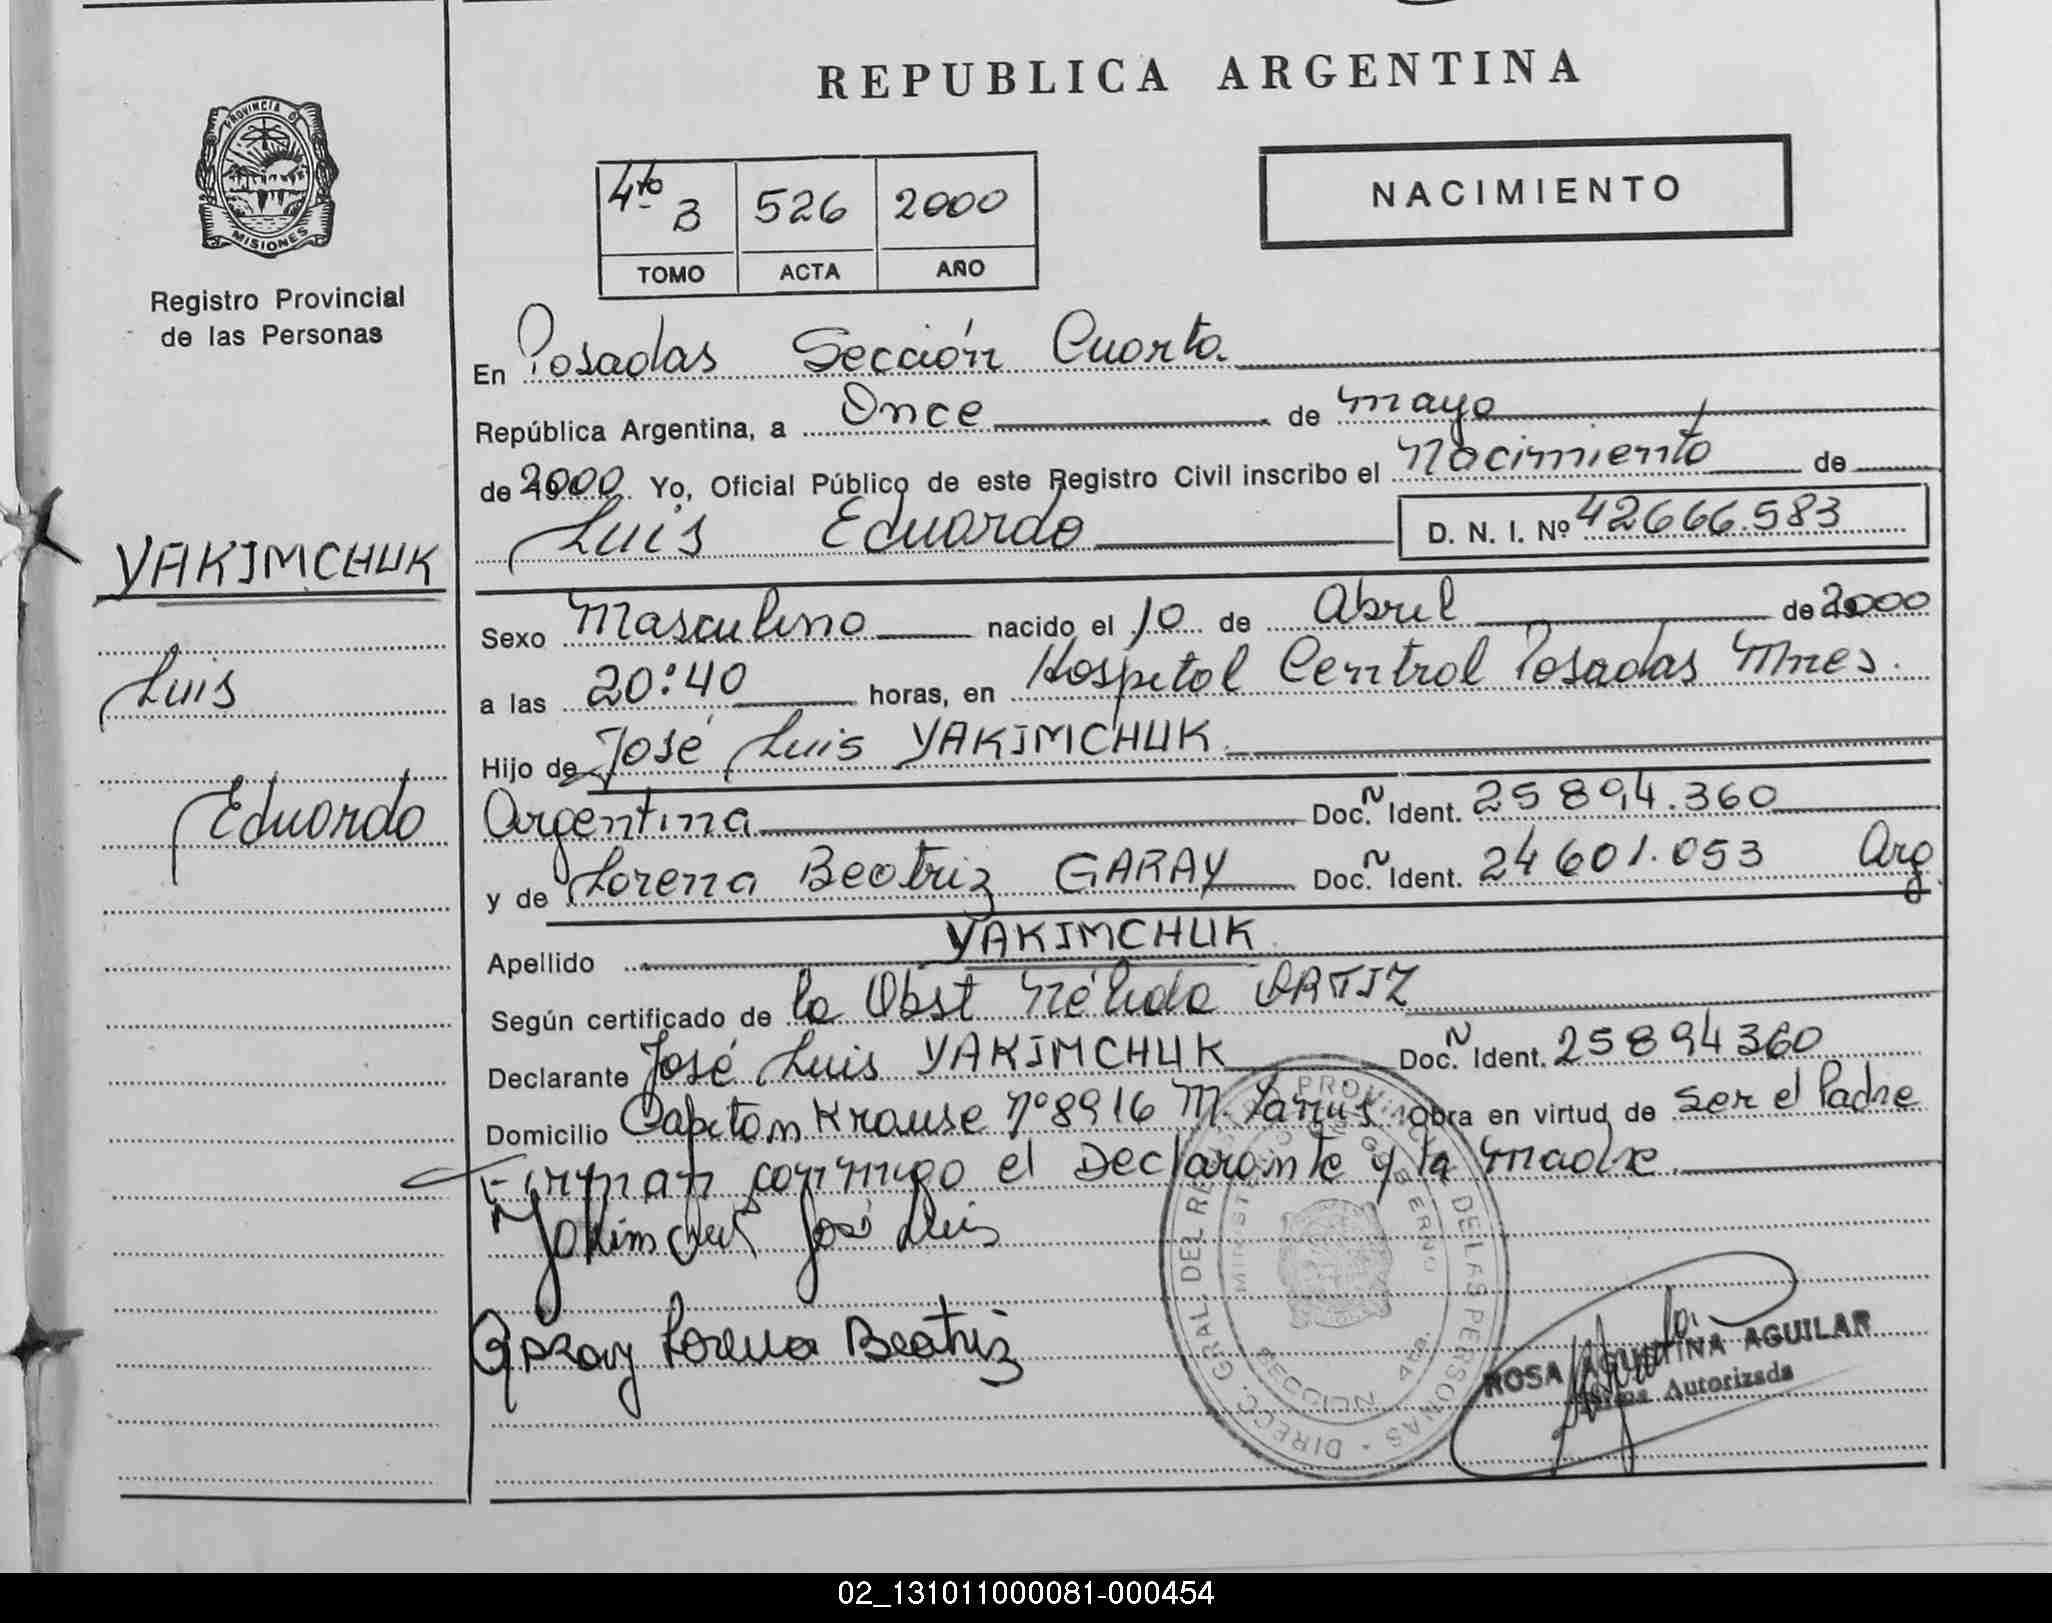 REPUBLICA ARGENTINA
PROVINCIA DE
MISIONES
Registro Provincial
de las Personas
4to B 526 2000
TOMO ACTA AÑO
NACIMIENTO
En Posadas Sección Cuarta.
República Argentina, a Once de mayo
de 2000 Yo, Oficial Público de este Registro Civil inscribo el Nacimiento de
Luis Eduardo D. N. I. Nº 42666.583
YAKIMCHUK
Luis
Eduardo
Sexo Masculino nacido el 10 de Abril de 2000
a las 20:40 horas, en Hospital Central Posadas Mnes.
Hijo de José Luis YAKIMCHUK
Argentina Doc. N Ident. 25894.360
y de Lorena Beatriz GARAY Doc. N Ident. 24601.053 Arg
Apellido YAKIMCHUK
Según certificado de la Obst Nélida ORTIZ
Declarante José Luis YAKIMCHUK Doc. N Ident. 25894360
Domicilio Capitan Krause nº 8916 M. Lanus Obra en virtud de ser el Padre
Firman conmigo el Declarante y la madre
Yakimchuk José Luis
Garay Lorena Beatriz
DIRECC. GRAL. DEL PROVINCIAL DE LAS PERSONAS
MINISTERIO DE GOBIERNO
SECCION 4ta.
ROSA AGUSTINA AGUILAR
Firma Autorizada
02_131011000081-000454